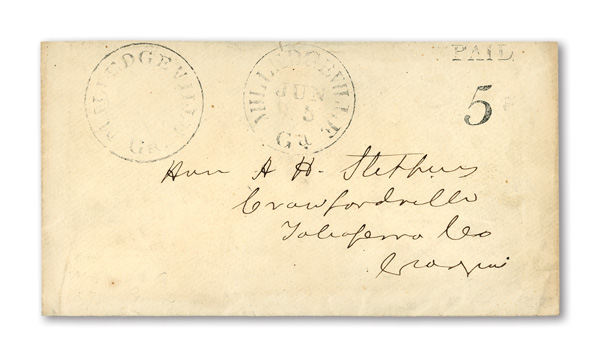 MILLEDGEVILLE
Ga.
MILLEDGEVILLE
JUN
5
Ga
PAID
5
Hon A H. Stephens
Crawfordville
Taliaferro Co
Georgia